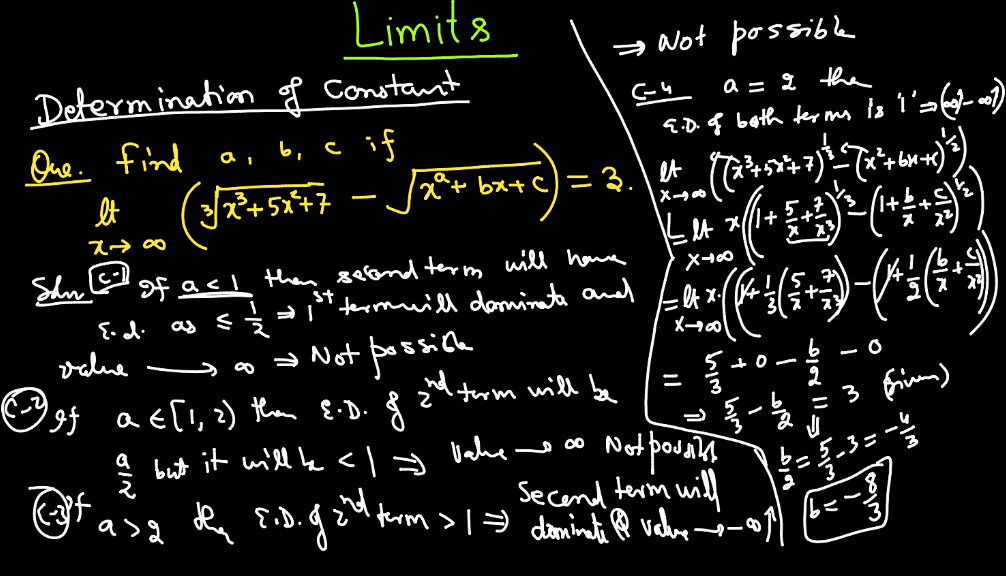 Limits
Determination of Constant
Que. find a, b, c if
lt x→∞ (∛(x³+5x²+7) − √(xᵃ+bx+c)) = 3.
Soln C-1 If a<1 then second term will have
E.d. as ≤ 1/2 ⇒ 1st term will dominate and
value → ∞ ⇒ Not possible
C-2 If a ∈ [1, 2) then E.D. of 2nd term will be
a/2 but it will be < 1 ⇒ value → ∞ Not possible
C-3 If a>2 then E.D. of 2nd term > 1 ⇒ Second term will
dominate & value → −∞
⇒ Not possible
C-4 a = 2 then
E.D. of both terms is '1' ⇒ (∞−∞)
lt x→∞ ((x³+5x²+7)^1/3 − (x²+bx+c)^1/2)
lt x→∞ x((1+5/x+7/x³)^1/3 − (1+b/x+c/x²)^1/2)
= lt x→∞ x·((1+1/3(5/x+7/x³)) − (1+1/2(b/x+c/x²)))
= 5/3 + 0 − b/2 − 0
⇒ 5/3 − b/2 = 3 (given)
⇓
b/2 = 5/3 − 3 = −4/3
b = −8/3